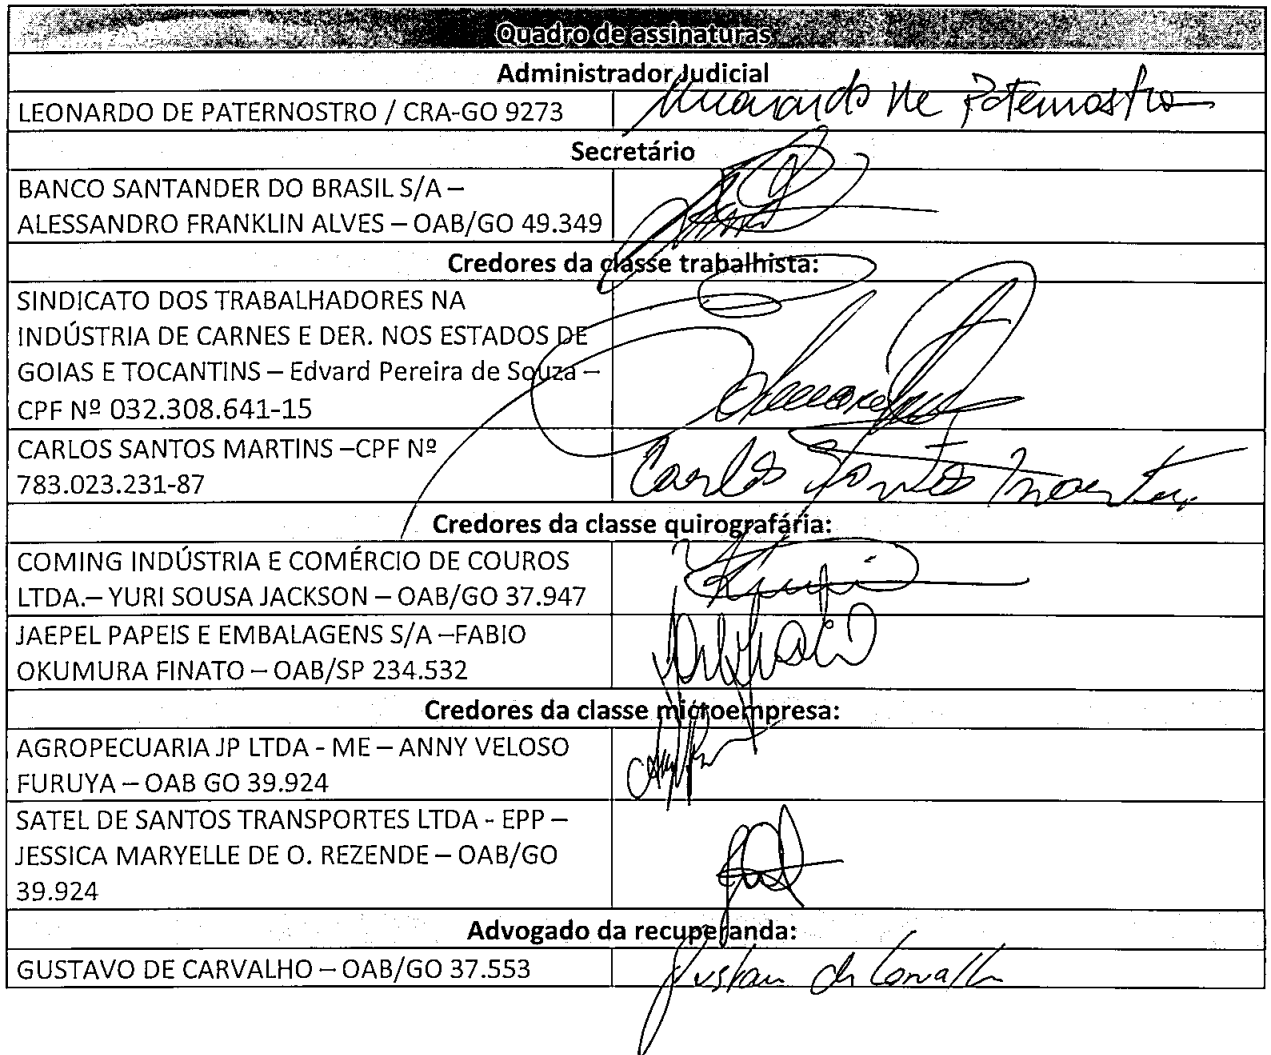 Quadro de assinaturas
Administrador Judicial
LEONARDO DE PATERNOSTRO / CRA-GO 9273
de Paternostro
Secretário
BANCO SANTANDER DO BRASIL S/A –
ALESSANDRO FRANKLIN ALVES – OAB/GO 49.349
Credores da classe trabalhista:
SINDICATO DOS TRABALHADORES NA
INDÚSTRIA DE CARNES E DER. NOS ESTADOS DE
GOIAS E TOCANTINS – Edvard Pereira de Souza –
CPF Nº 032.308.641-15
CARLOS SANTOS MARTINS –CPF Nº
783.023.231-87
Carlos Santos Martins
Credores da classe quirografária:
COMING INDÚSTRIA E COMÉRCIO DE COUROS
LTDA.– YURI SOUSA JACKSON – OAB/GO 37.947
JAEPEL PAPEIS E EMBALAGENS S/A –FABIO
OKUMURA FINATO – OAB/SP 234.532
Credores da classe microempresa:
AGROPECUARIA JP LTDA - ME – ANNY VELOSO
FURUYA – OAB GO 39.924
SATEL DE SANTOS TRANSPORTES LTDA - EPP –
JESSICA MARYELLE DE O. REZENDE – OAB/GO
39.924
Advogado da recuperanda:
GUSTAVO DE CARVALHO – OAB/GO 37.553
Gustavo de Carvalho